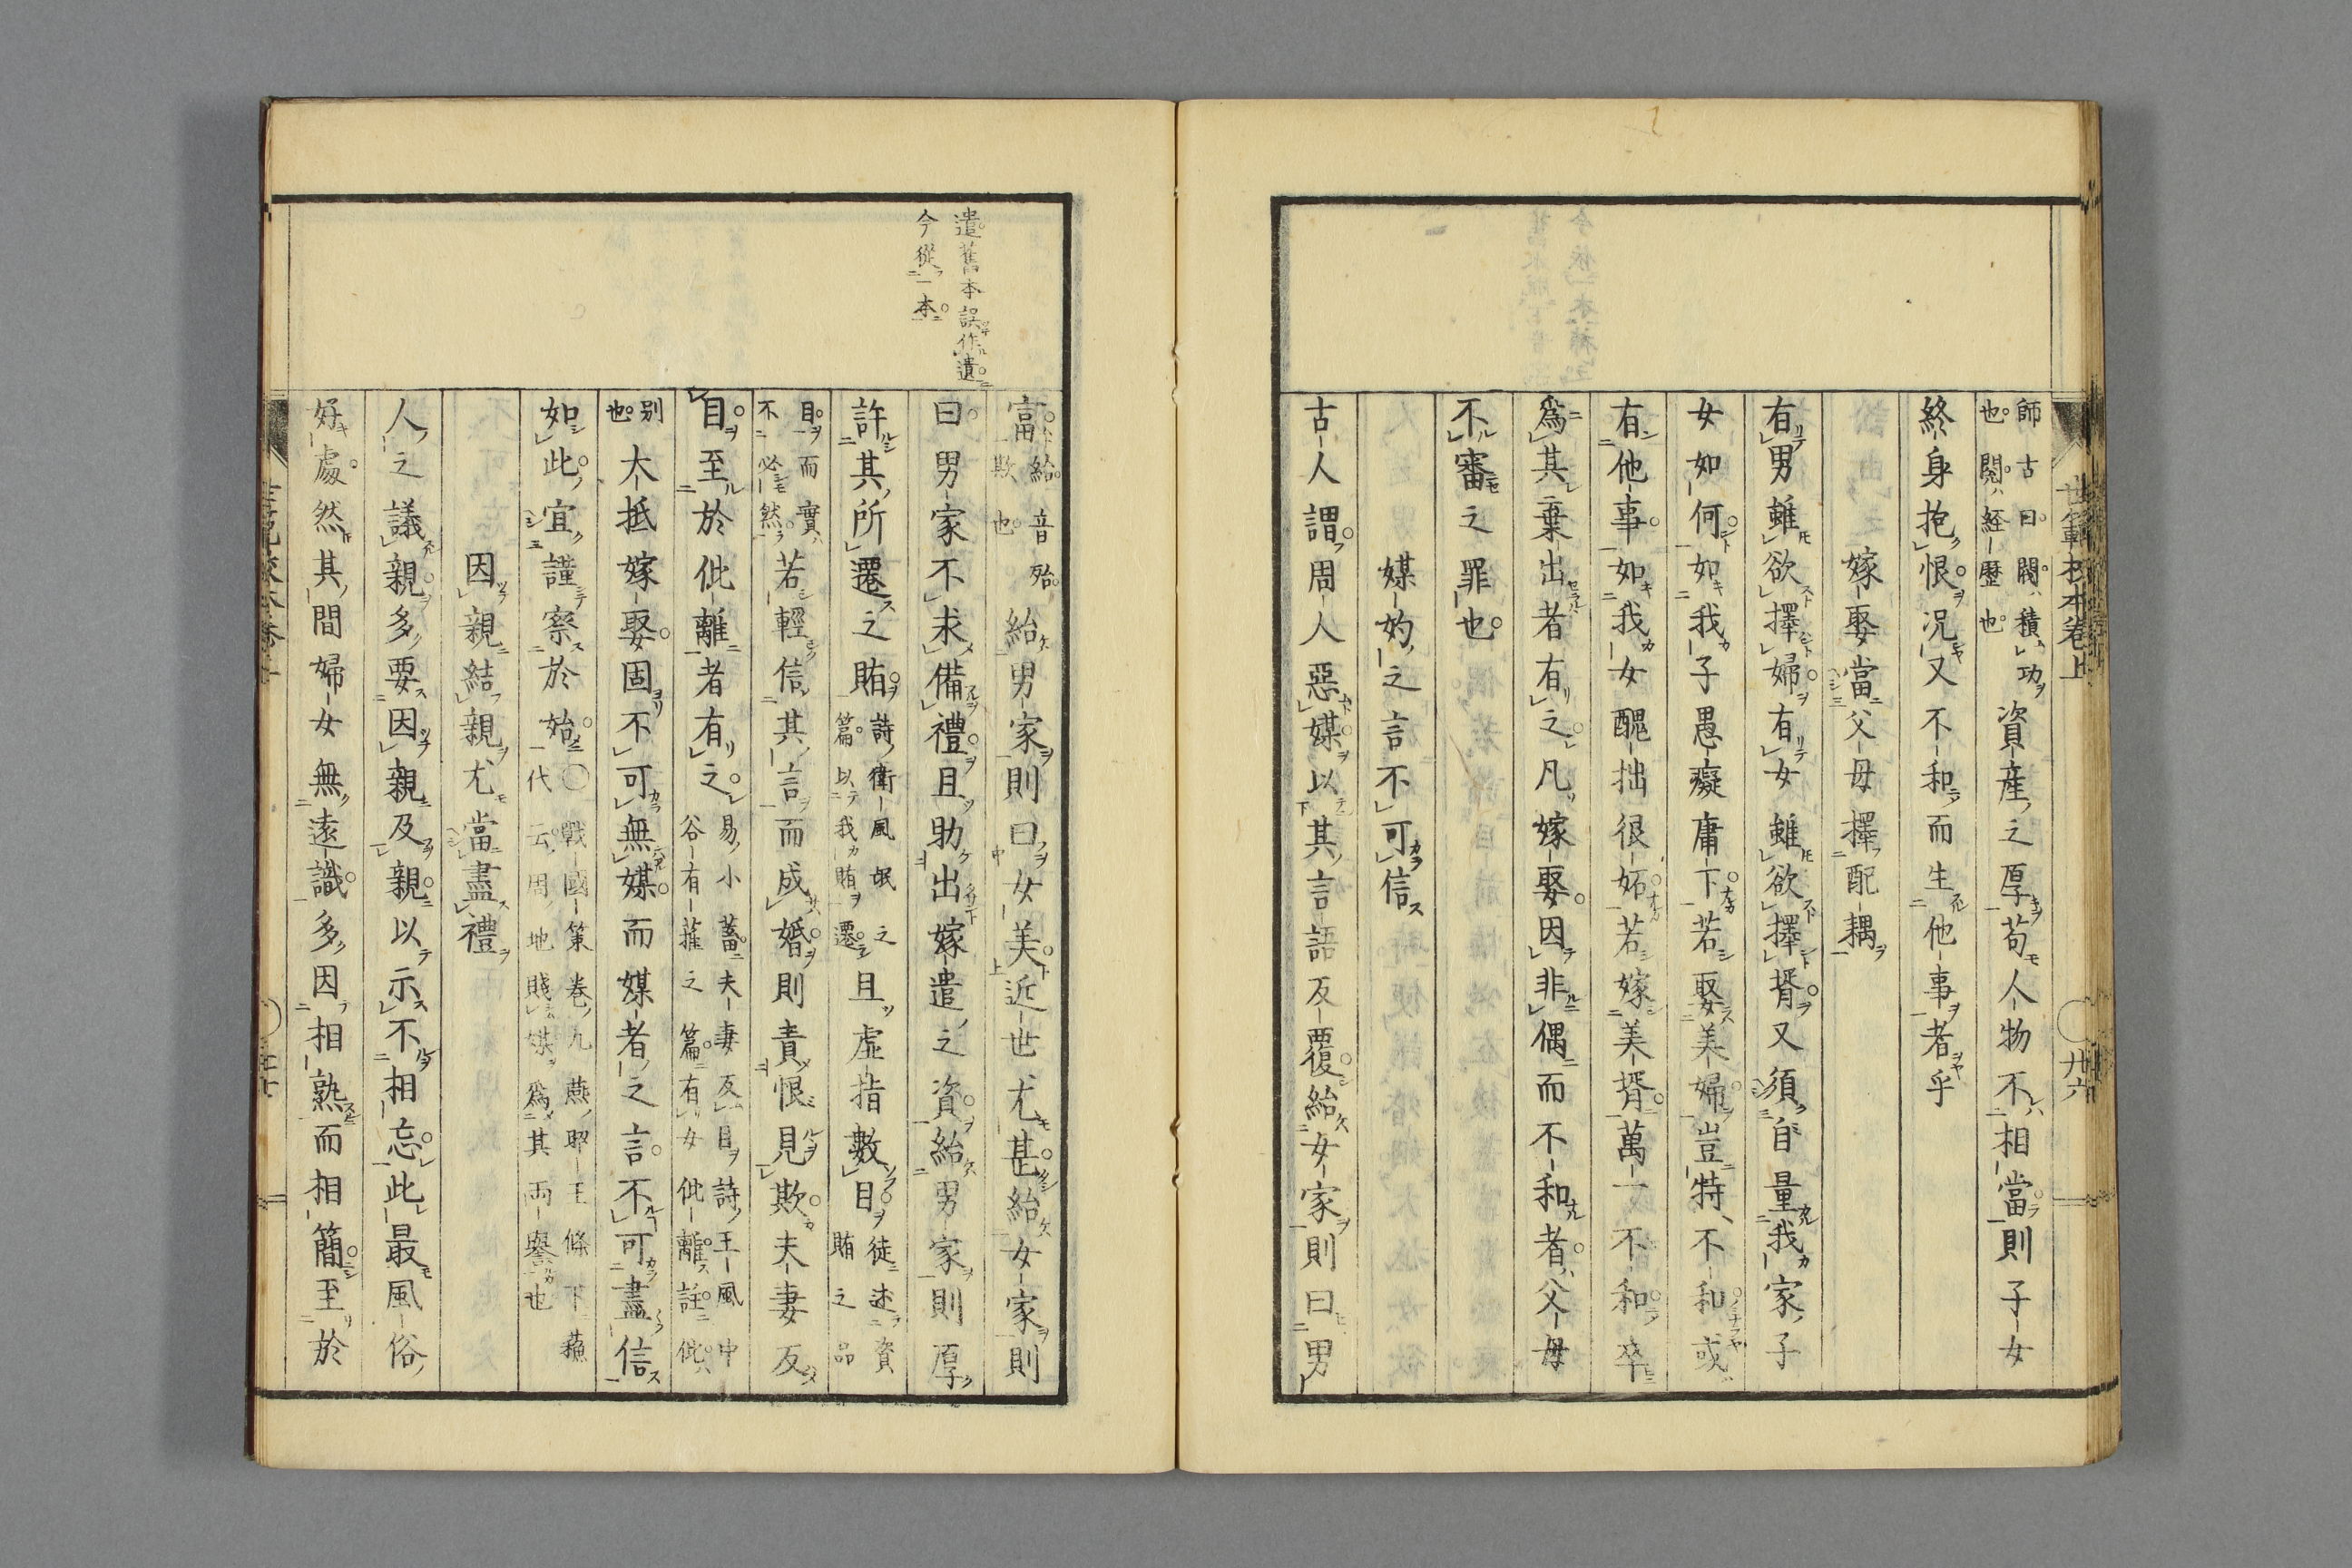 世範校本卷上
廿六
師古曰閥積功
也閱経歷也
資産之厚苟人物不相當則子女
終身抱恨況又不和而生他事者乎
嫁娶當父母擇配耦
有男雖欲擇婦有女雖欲擇婿又須自量我家子
女如何如我子愚癡庸下若娶美婦豈特不和或
有他事如我女醜拙很妬若嫁美婿萬一不和卒
爲其棄出者有之凡嫁娶因非偶而不和者父母
不審之罪也
媒妁之言不可信
古人謂周人惡媒以其言語反覆紿女家則曰男
遣舊本誤作遺
今從一本
富紿音殆
欺也
紿男家則曰女美近世尤甚紿女家則
曰男家不求備禮且助出嫁遣之資紿男家則厚
許其所遷之賄
詩衛風氓之
篇以我賄遷
且虛指數目
徒述資
賄之品
目而實
不必然
若輕信其言而成婚則責恨見欺夫妻反
目至於仳離者有之
易小蓄夫妻反目詩王風中
谷有蓷之篇有女仳離註仳
别
也
大抵嫁娶固不可無媒而媒者之言不可盡信
如此宜謹察於始
〇戰國策卷九燕昭王條下蘓
代云周地賤媒爲其兩譽也
因親結親尤當盡禮
人之議親多要因親及親以示不相忘此最風俗
好處然其間婦女無遠識多因相熟而相簡至於